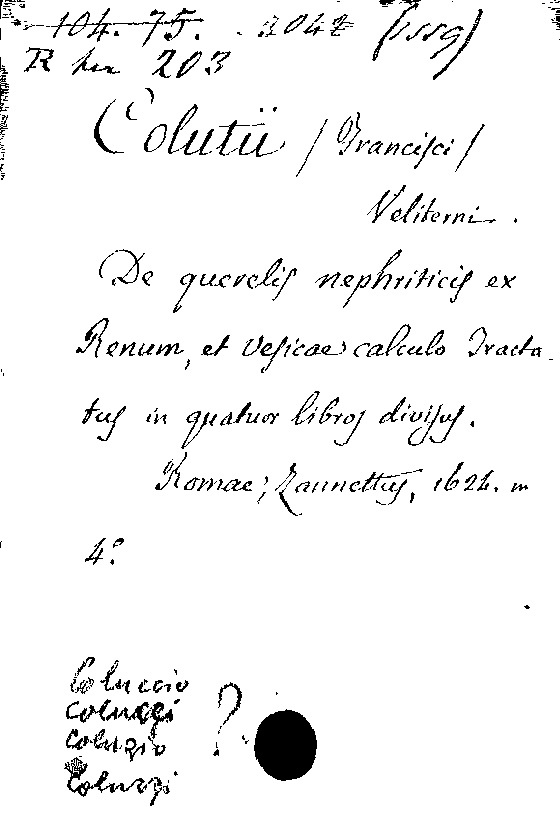 104. 75. . 3042 (1559)
R her 203
Colutii / Francisci /
Veliterni .
De querelis nephriticis ex
Renum, et Vesicae calculo Tracta-
tus in quatuor libros divisus.
Romae, Zannettus, 1624. in
4°
Coluccio
Coluzzi
Coluzio
Coluzzi
?